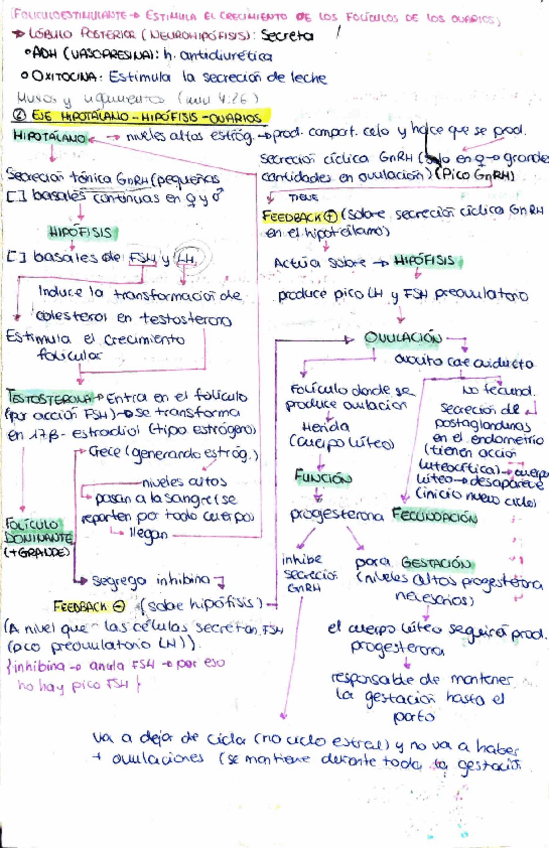 (FOLICULOESTIMULANTE → ESTIMULA EL CRECIMIENTO DE LOS FOLÍCULOS DE LOS OVARIOS)
→ LÓBULO POSTERIOR (NEUROHIPÓFISIS): Secreta
• ADH (VASOPRESINA): h. antidiurética
• OXITOCINA: Estimula la secreción de leche
② EJE HIPOTÁLAMO - HIPÓFISIS - OVARIOS
HIPOTÁLAMO
Secreción tónica GnRH (pequeñas
[ ] basales continuas en ♀ y ♂
HIPÓFISIS
[ ] basales de FSH y LH
Induce la transformación de
colesterol en testosterona
Estimula el crecimiento
folicular
TESTOSTERONA → Entra en el folículo
(por acción FSH) → se transforma
en 17β - estradiol (tipo estrógeno)
Crece (generando estróg.)
niveles altos
pasan a la sangre (se
reparten por todo cuerpo)
llegan
FOLÍCULO
DOMINANTE
(+GRANDE)
segrega inhibina
FEEDBACK ⊖ (sobre hipófisis)
(A nivel que las células secretan FSH
(pico preovulatorio LH)).
{inhibina → anula FSH → por eso
no hay pico FSH}
→ niveles altos estróg. → prod. comport. celo y hace que se prod.
Secreción cíclica GnRH (solo en ♀ → grandes
cantidades en ovulación) (Pico GnRH)
TIENE
FEEDBACK ⊕ (sobre secreción cíclica GnRH
en el hipotálamo)
Actúa sobre → HIPÓFISIS
produce pico LH y FSH preovulatorio
OVULACIÓN
ovocito cae oviducto
Folículo donde se
produce ovulación
Herida
(cuerpo lúteo)
FUNCIÓN
progesterona
No fecund.
Secreción de
postaglandinas
en el endometrio
(tienen acción
luteolítica) → cuerpo
lúteo → desaparece
(inicio nuevo ciclo)
FECUNDACIÓN
inhibe
secreción
GnRH
para GESTACIÓN
(niveles altos progesterona
necesarios)
el cuerpo lúteo seguirá prod.
progesterona
responsable de mantener
la gestación hasta el
parto
va a dejar de ciclar (no ciclo estral) y no va a haber
+ ovulaciones (se mantiene durante toda la gestación